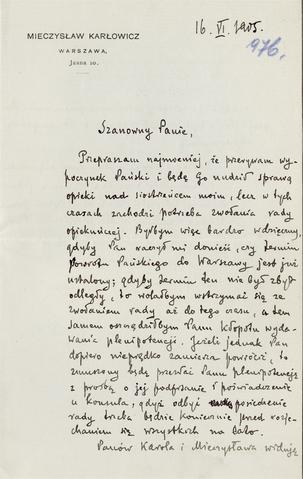 MIECZYSŁAW KARŁOWICZ
WARSZAWA,
Jasna 10.
16. VI. 1905.
976.
Szanowny Panie,
Przepraszam najmocniej, że przerywam wy-
poczynek Pański i będę Go nudził sprawą
opieki nad siostrzeńcem moim, lecz w tych
czasach zachodzi potrzeba zwołania rady
opiekuńczej. Byłbym więc bardzo wdzięczny,
gdyby Pan raczył mi donieść, czy termin
powrotu Pańskiego do Warszawy jest już
ustalony; gdyby termin ten nie był zbyt
odległy, to wolałbym wstrzymać się ze
zwołaniem rady aż do tego czasu, a tem
samem oszczędziłbym Panu kłopotu wyda-
wania plenipotencji. Jeżeli jednak Pan
dopiero nieprędko zamierza powrócić, to
zmuszony będę przesłać Panu plenipotencję
z prośbą o jej podpisanie i poświadczenie
u konsula, gdyż odbyć posiedzenie
rady trzeba będzie koniecznie przed rozje-
chaniem się wszystkich na lato.
Panów Karola i Mieczysława widuję